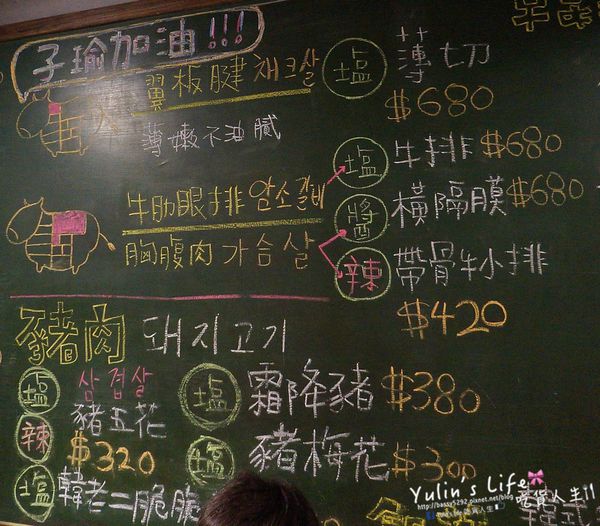 子瑜加油!!!
翼板腱 채크살
薄嫩不油膩
塩 薄切
$680
牛肋眼排 암소갈비
胸腹肉 가슴살
塩 牛排 $680
醬 橫隔膜 $680
辣 帶骨牛小排
$420
豬肉 돼지고기
塩 삼겹살
辣 豬五花
$320
塩 韓老二脆脆
塩 霜降豬 $380
塩 豬梅花 $300
Yulin's Life
吃貨人生!!
http://bassy5292.pixnet.net/blog